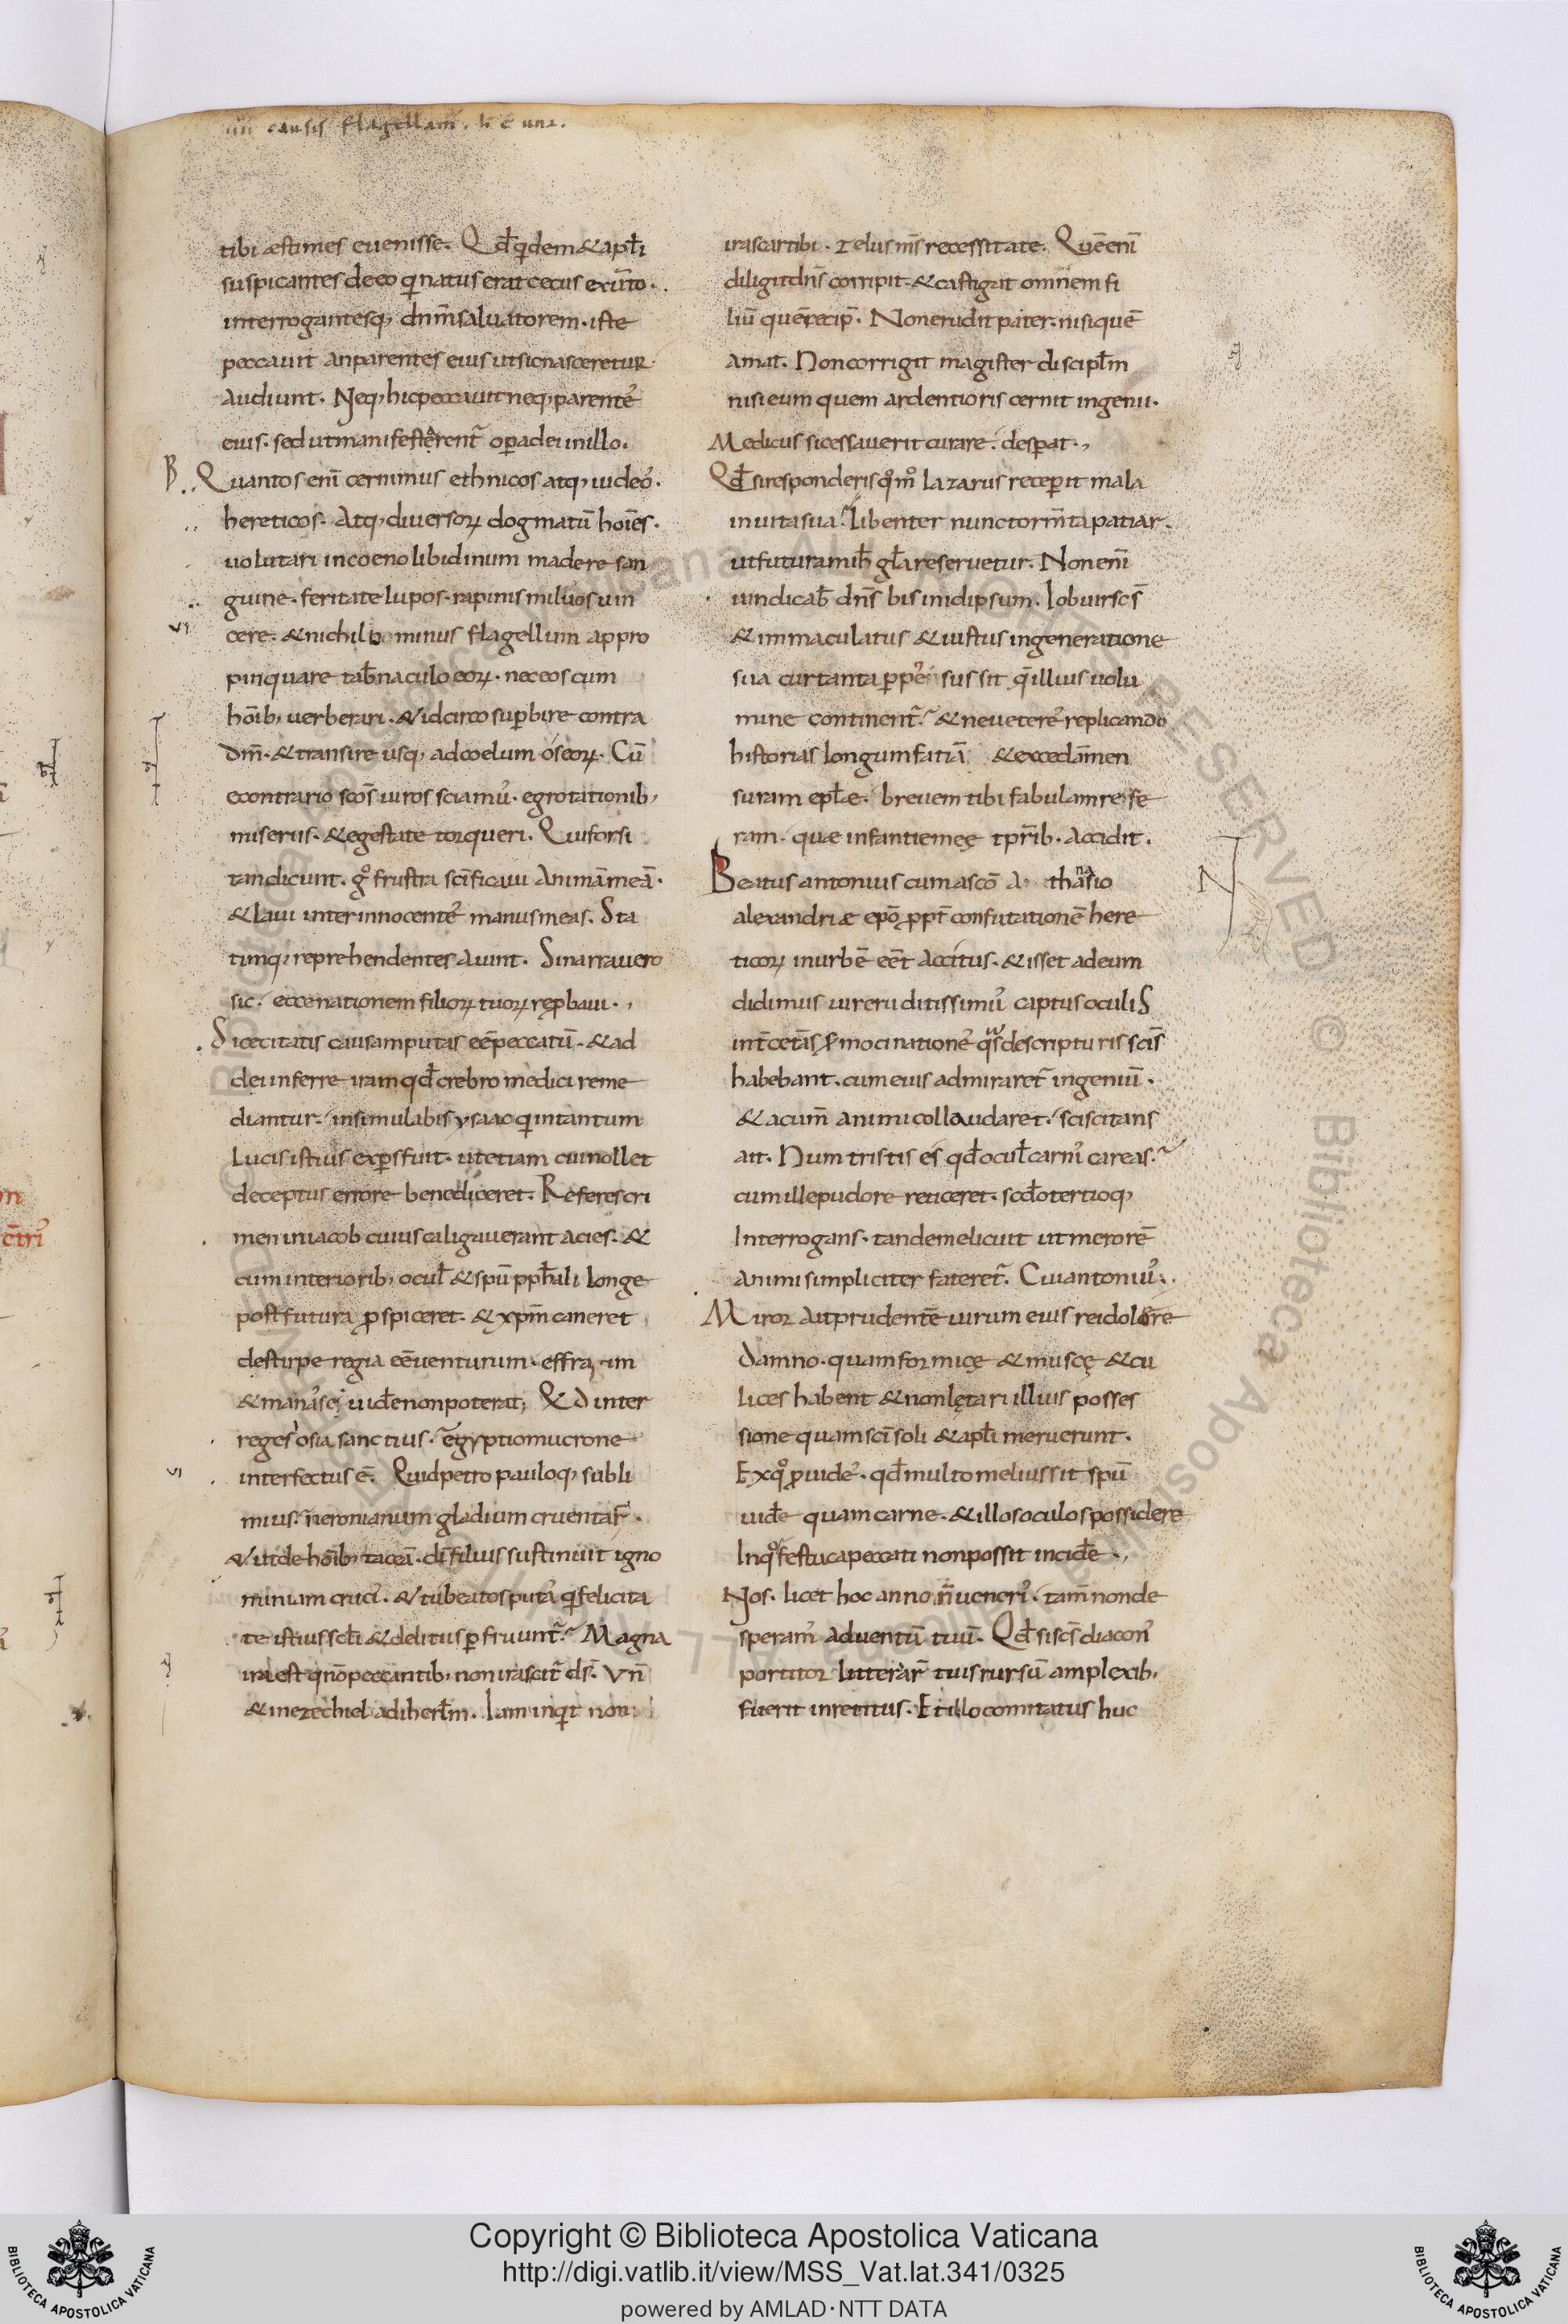 causis flagellam̄. h̄ ē una.
tibi æstimes euenisse. Qd̄ qidem & apl̄i
suspicantes de eo qi natus erat cecus ex ut̄o.
interrogantesq, dn̄m saluatorem. iste
peccauit an parentes eius ut sic nasceretur.
Audiunt. Neq, hic peccauit neq, parente᾿
eius. sed ut manifestarent᷑ opera dei in illo.
Quantos eni᷑ cernimus ethnicos atq, iudeo᾿.
hereticos. Atq, diuersoꝝ dogmatū hoīes.
uolutari in coeno libidinum madere san
guine. feritate lupos. rapinis miluos uin
cere. & nichilo minus flagellum appro
pinquare tab̄naculo eoꝝ. nec eos cum
hōib, uerberari. & idcirco superbire contra
dm̄. & transire usq, ad coelum os eoꝝ. Cū
econtrario scōs uiros sciamu᾿. egrotationib,
miseriis. & egestate torqueri. Qui forsi
tan dicunt. gͦ frustra sc̄ificaui Animā meā.
& laui inter innocente᾿ manus meas. Sta
timq, reprehendentes aiunt. Si narrauero
sic. ecce nationem filioꝝ tuoꝝ reꝓbaui.,
Si cecitatis causam putas ēe peccatū. & ad
dei inferre iram qd̄ crebro medici reme
diantur. insimulabis ysaac qi in tantum
Lucis istius expers fuit. ut etiam cui nollet
deceptus errore benediceret. Referes cri
men in iacob cuius caligauerant acies. &
cum interiorib, ocul̄ & spū pph̄ali longe
post futura ꝓspiceret. & xpm̄ caneret
de stirpe regia ēe uenturum. effraim
& manasse uidē non poterat; Qd inter
reges osia sanctius. egyptio mucrone
interfectus ē. Quid petro pauloq, subli
mius. neronianum gladium cruentar̄.
& ut de hōib, tacea᷑. dī filius sustinuit igno
miniam cruci᾿. & tu beatos puta᾿ qi felicita
te istius sc̄li & delitiis perfruunt᷑. Magna
ira est qn̄o peccantib, non irascit᷑ ds̄. Vn̄
& in ezechiel ad iherl̄m. Iam inqit non
irascar tibi. zelus m̄s recessit a te. Quē eni᷑
diligit dn̄s corripit. & castigat omnem fi
liū quē recip̄. Non erudit pater. nisi quē
amat. Non corrigit magister discipl̄m
nisi eum quem ardentioris cernit ingenii.
Medicus si cessauerit curare. desperat.,
Qd̄ si responderis qͦmͦ Lazarus recepit mala
in uita sua. Libenter nunc torm̄ta patiar.
ut futura mih̄ gl̄a reseruetur. Non eni᷑
uindicab̄ dn̄s bis in id ipsum. Iob uir sc̄s
& immaculatus & iustus in generatione
sua cur tanta perpe sus sit q̄ illius uolu
mine continent᷑. & ne uetere᾿ replicando
historias longum fatiā & excedā men
suram epl̄æ. breuem tibi fabulam refe
ram. quæ infantiæ meę tpr̄ib. accidit.
Beatus antonius cum a scō A thanasio
alexandriæ epō ꝓpt̄ confutationē here
ticoꝝ in urbē ēet accitus. & isset ad eum
didimus uir eruditissimu᾿ captus oculis
int̄ cetas sermocinatione᾿ qas de scripturis scīs
habebant. cum eius admiraret᷑ ingeniū.
& acum̄ animi collaudaret. sciscitans
ait. Num tristis es qd̄ ocul̄ carni᾿ careas.
cum ille pudore reticeret. scd̄o tertioq,
Interrogans. tandem elicuit ut merorē
animi simpliciter fateret᷑. Cui antoniu᾿.
Miror ait prudentē uirum eius rei dolore
damno. quam formicę & muscę & cu
lices habent & non lętari illius posses
sione quam scī soli & apl̄i meruerunt.
Ex qͦ ꝓuide᾿. qd̄ multo melius sit spū
uidē quam carne. & illos oculos possidere
In qͦ festuca peccati non possit incidē.,
Nos. licet hoc anno n̄ ueneri᾿. tam̄ non de
speram᾿ aduentū tuū. Qd̄ si sc̄s diacon᾿
portitor litterar̄ tuis rursū amplexib,
fuerit inretitus. Et illo comitatus huc
Copyright © Biblioteca Apostolica Vaticana
http://digi.vatlib.it/view/MSS_Vat.lat.341/0325
powered by AMLAD·NTT DATA